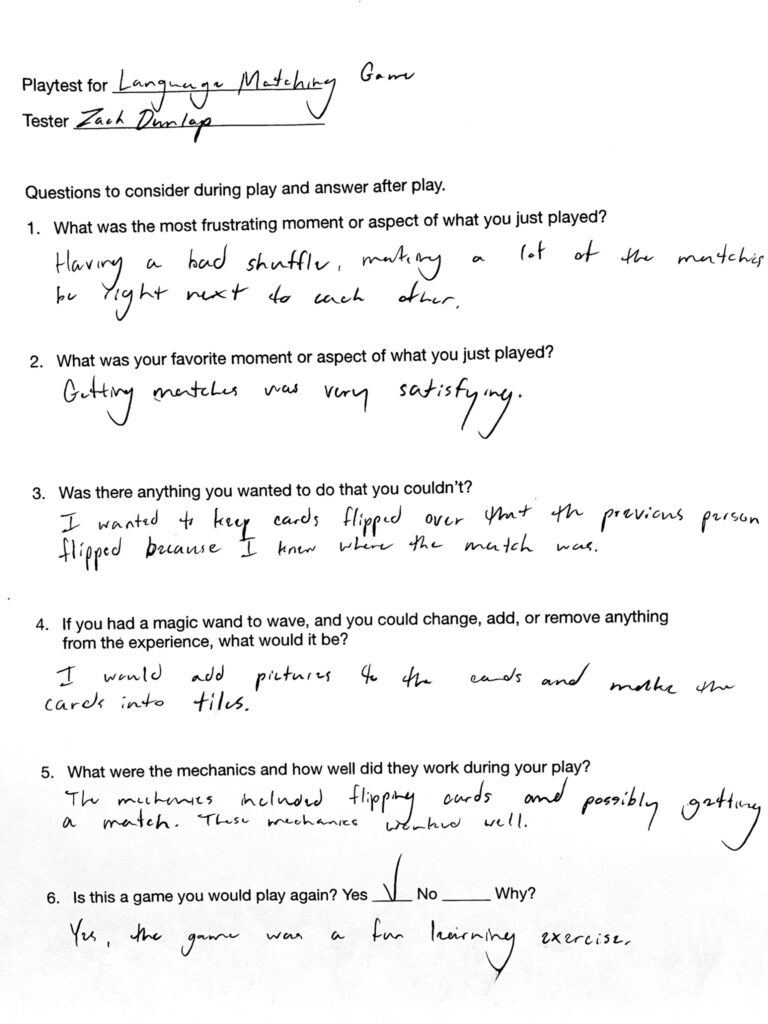 Playtest for Language Matching Game
Tester Zach Dunlap
Questions to consider during play and answer after play.
1. What was the most frustrating moment or aspect of what you just played?
Having a bad shuffle, making a lot of the matches
be right next to each other.
2. What was your favorite moment or aspect of what you just played?
Getting matches was very satisfying.
3. Was there anything you wanted to do that you couldn't?
I wanted to keep cards flipped over that the previous person
flipped because I knew where the match was.
4. If you had a magic wand to wave, and you could change, add, or remove anything
from the experience, what would it be?
I would add pictures to the cards and make the
cards into tiles.
5. What were the mechanics and how well did they work during your play?
The mechanics included flipping cards and possibly getting
a match. These mechanics worked well.
6. Is this a game you would play again? Yes ✓ No ____ Why?
Yes, the game was a fun learning exercise.